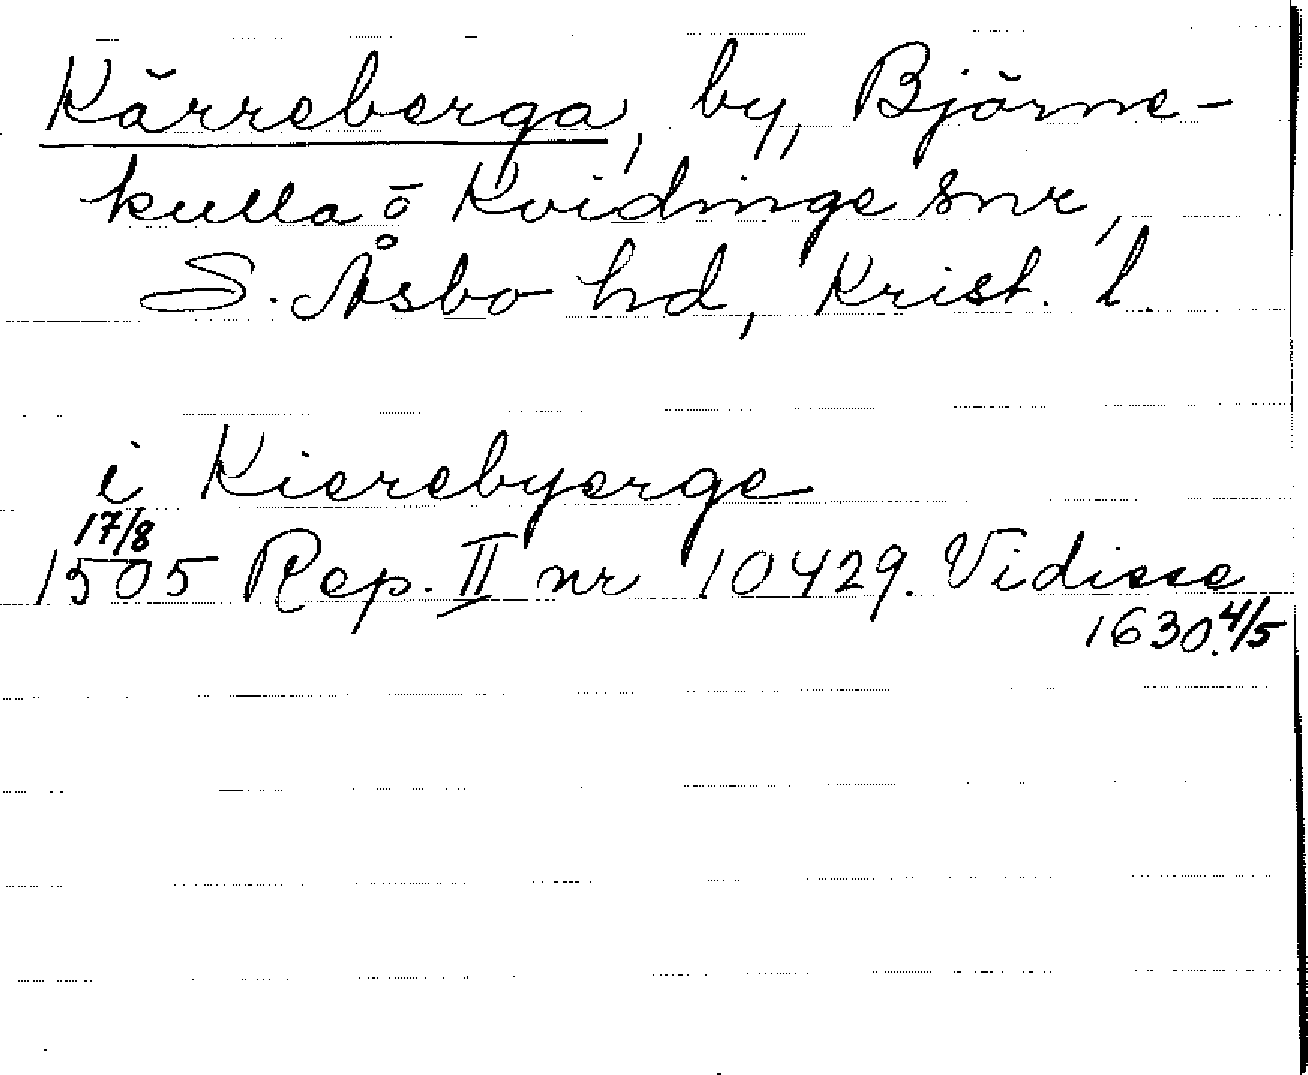 Kärreberga, by, Björne-
kulla o Kvidinge snr,
S. Åsbo hd, Krist. l.
i Kierebyerge
17/8
1505 Rep. II nr 10429. Vidisse
1630. 4/5